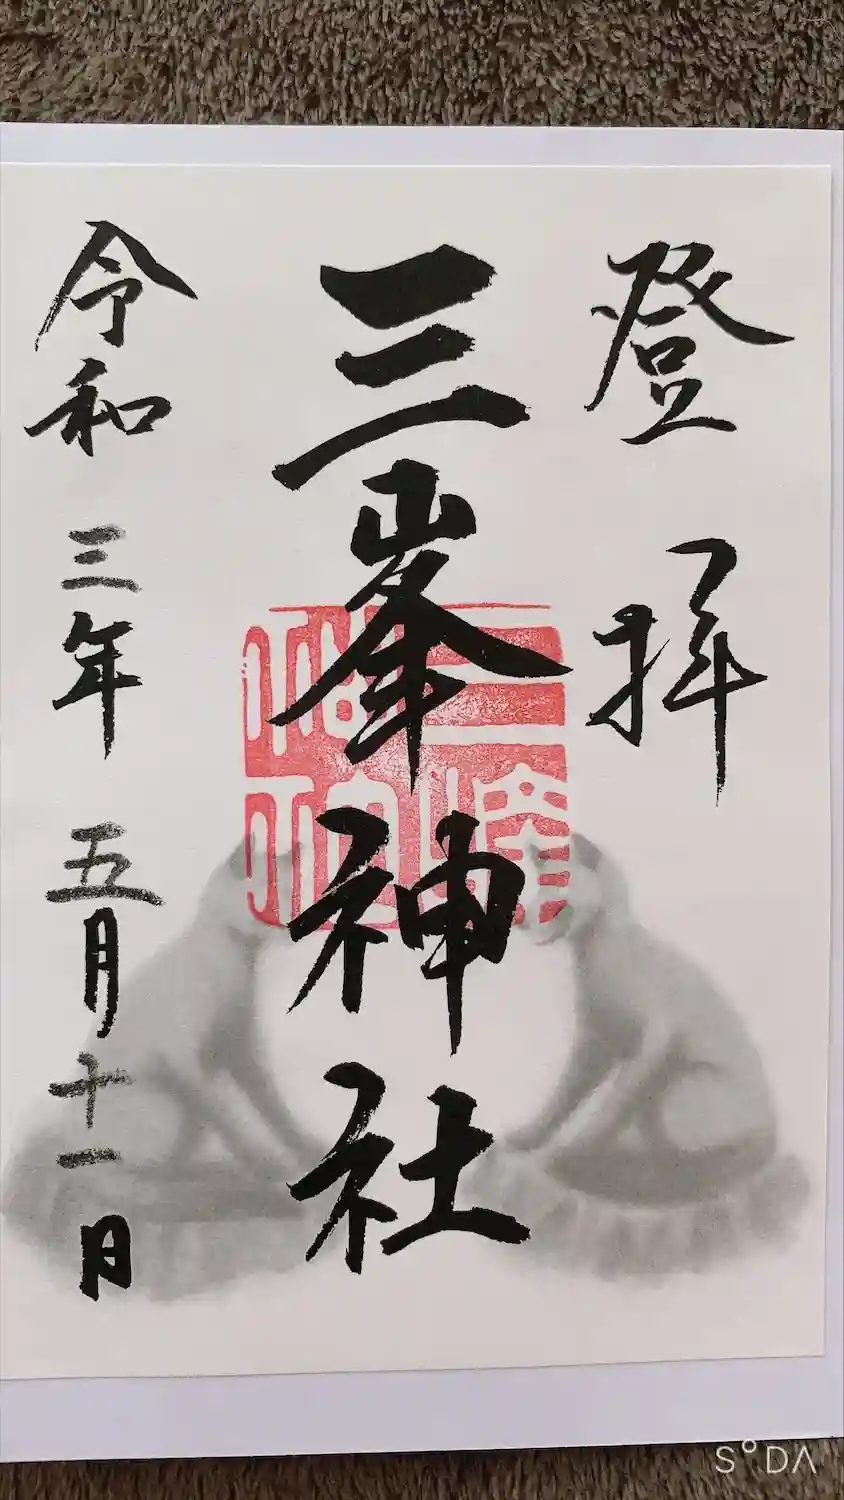 登拝
三峯神社
令和三年五月十一日
S°DA